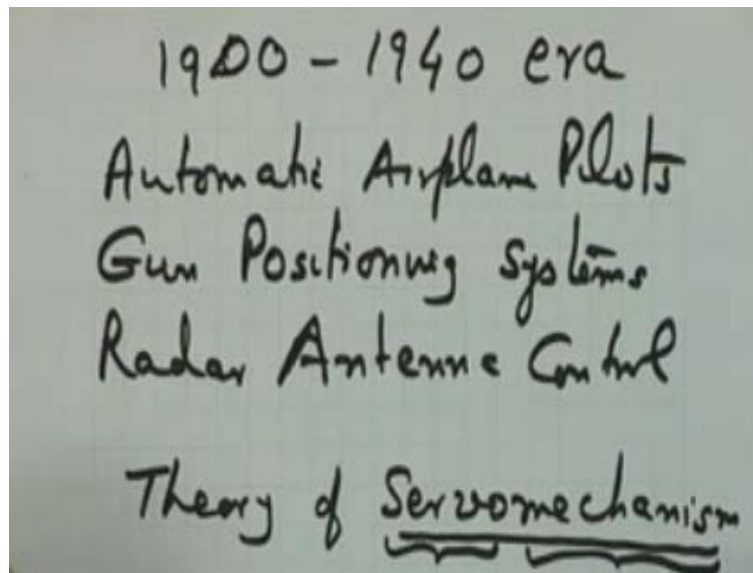 1900 - 1940 era
Automatic Airplane Pilots
Gun Positioning Systems
Radar Antenna Control
Theory of Servomechanism